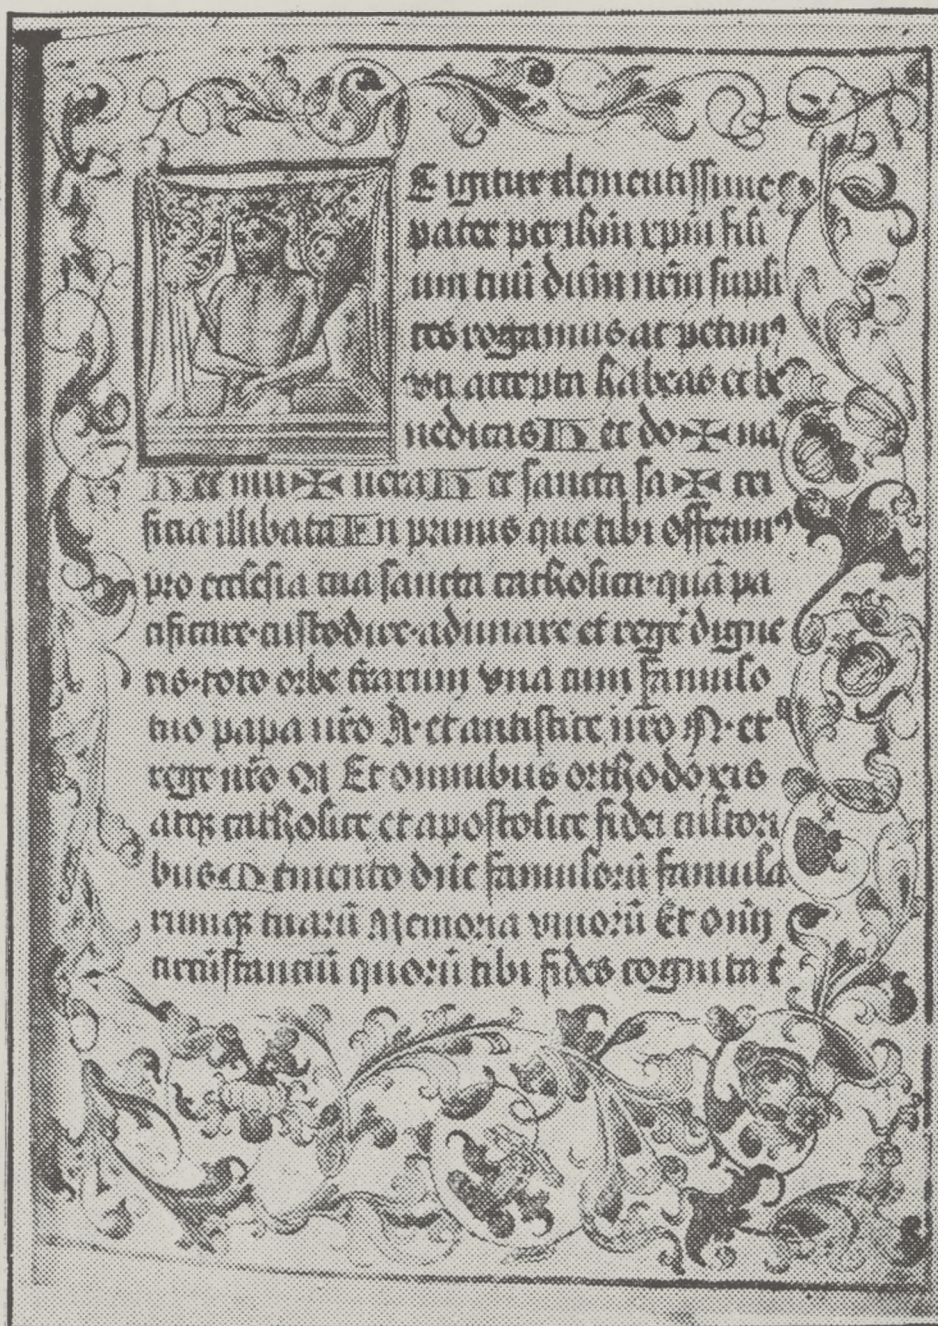 E igitur clementissime
pater per ihm̄ xpm̄ fili
um tuū dn̄m nr̄m supli
ces rogamus ac petimꝰ
vti accepta habeas et be
nedicas H ec do ✠ na
H ec mu ✠ nera H ec sancta sa ✠ cri
ficia illibata In primis que tibi offerimꝰ
pro ecclesia tua sancta catholica·quā pa
cificare·custodire·adunare et regē digne
ris·toto orbe t̄rarum vna cum famulo
tuo papa nr̄o N·et antistite nr̄o N·et
rege nr̄o N Et omnibus orthodoxis
atqꝫ catholice et apostolice fidei cultori
bus M emento dn̄e famulorū famula
rumqꝫ tuarū Memoria viuorū Et om̄iꝫ
circūstanciū quorū tibi fides cognita ē